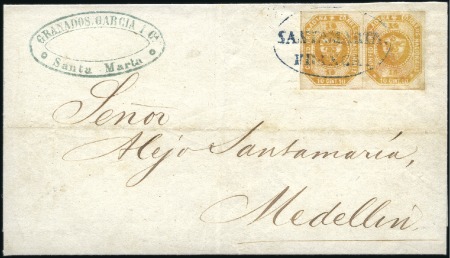 GRANADOS, GARCIA I Ca
Santa-Marta
SANTAMARTA
FRANCA
Señor
Alejo Santamaría,
Medellin